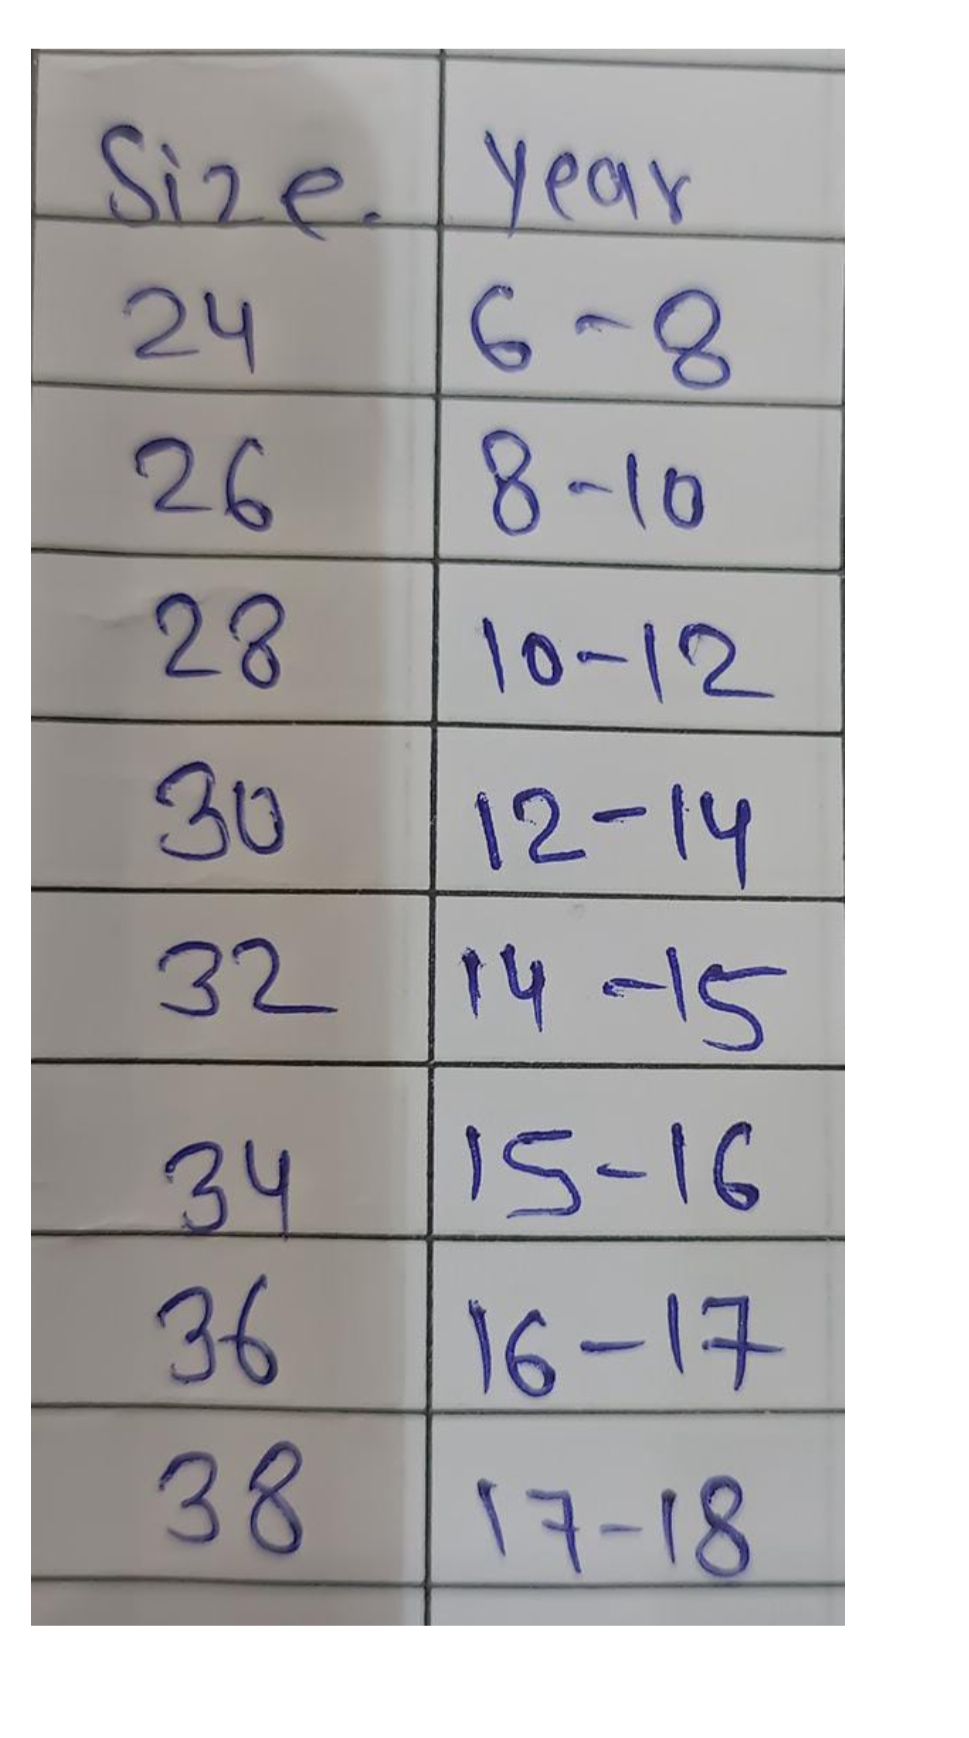 Size. year
24 6-8
26 8-10
28 10-12
30 12-14
32 14-15
34 15-16
36 16-17
38 17-18